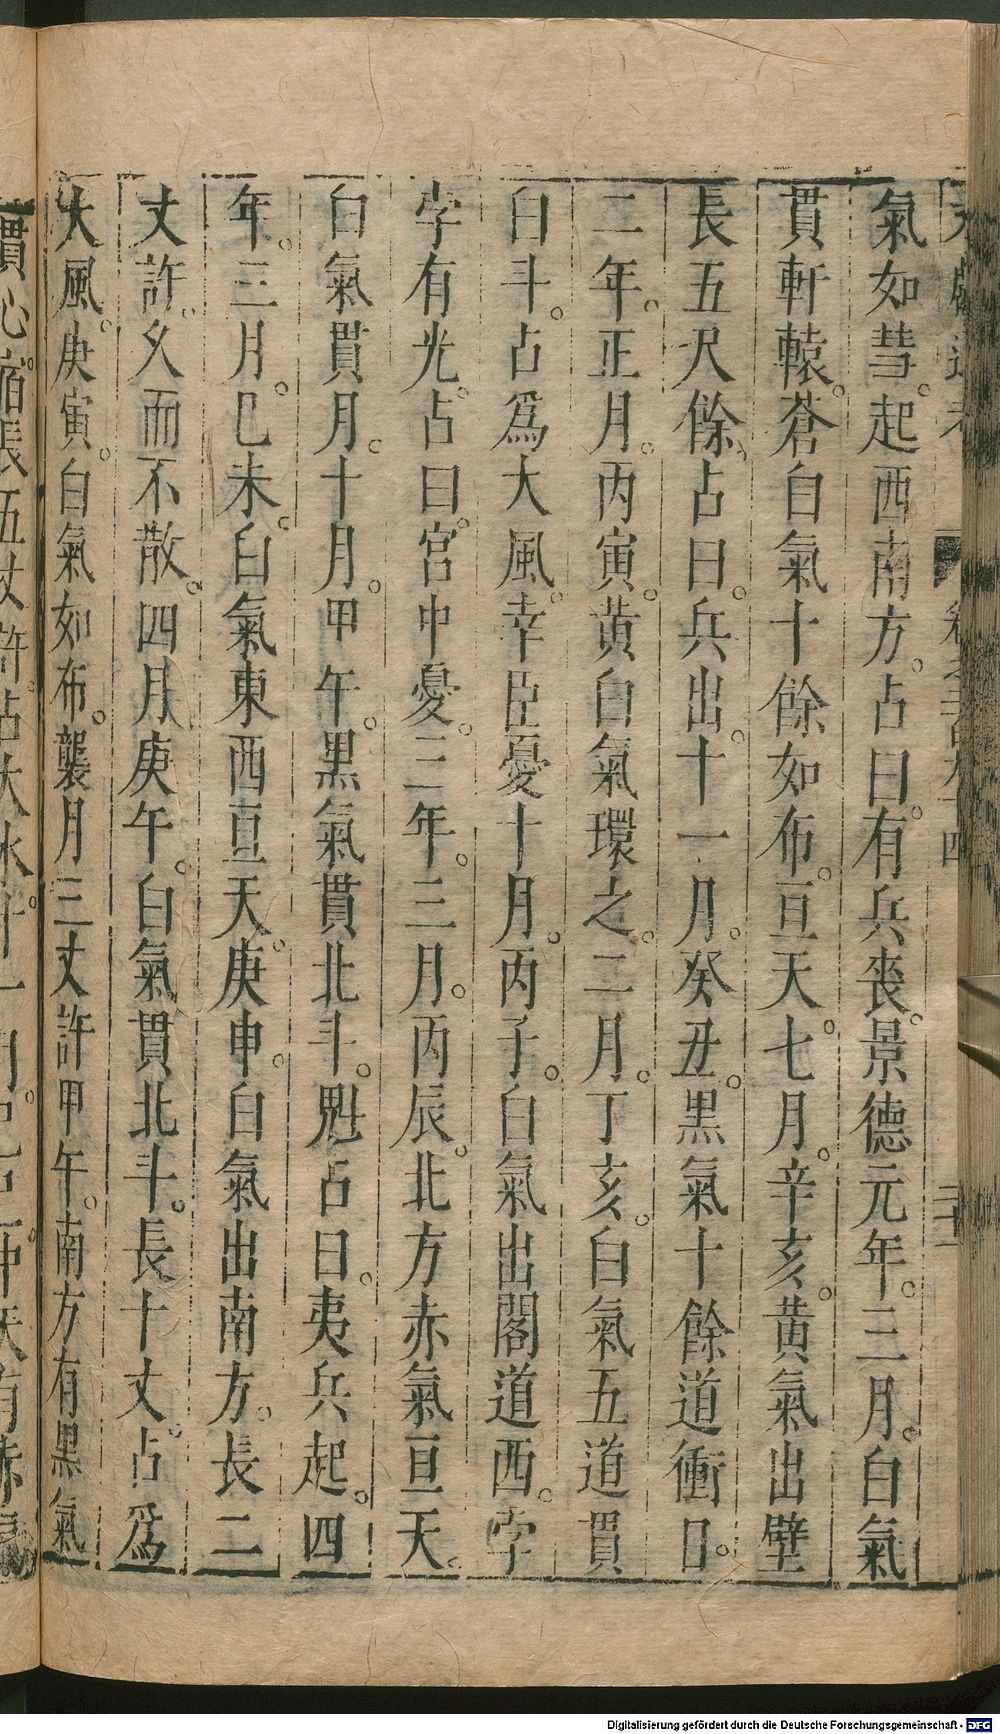 氣如彗。起西南方。占曰。有兵喪。景德元年。三月。白氣
貫軒轅。蒼白氣十餘如布。亘天。七月。辛亥。黃氣出壁
長五尺餘。占曰。兵出。十一月。癸丑。黑氣十餘道衝日。
二年。正月。丙寅。黃白氣環之。二月。丁亥。白氣五道貫
白斗。占為大風。幸臣憂。十月。丙子。白氣出閣道西。孛
孛有光。占曰。宮中憂。三年。三月。丙辰。北方赤氣亘天。
白氣貫月。十月。甲午。黑氣貫北斗。魁占曰。夷兵起。四
年。三月。己未。白氣東西亘天。庚申。白氣出南方。長二
丈許。久而不散。四月。庚午。白氣貫北斗。長十丈。占為
大風。庚寅。白氣如布。襲月三丈許。甲午。南方有黑氣
貫心宿長五丈許。占大水
Digitalisierung gefördert durch die Deutsche Forschungsgemeinschaft - DFG